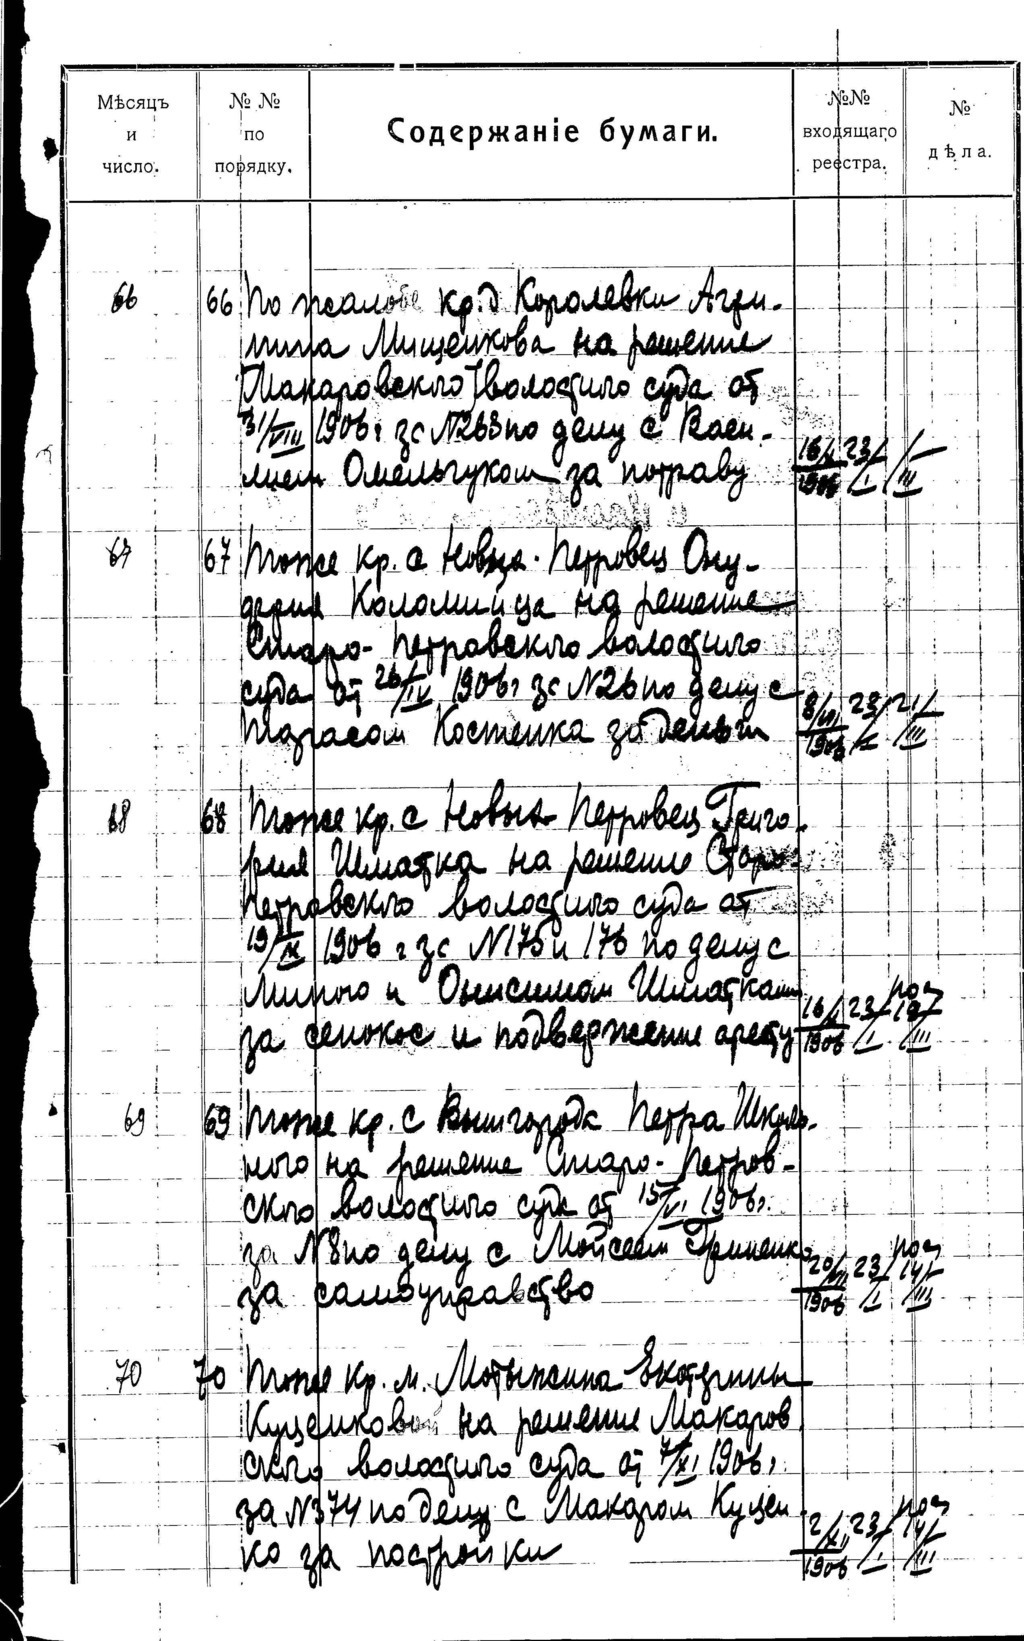 Мѣсяцъ и число.
№ № по порядку.
Содержаніе бумаги.
№№ входящаго реестра.
№ дѣла.
66 66 По жалобе кр. д Королевки Агри-
пина Мищенкова на решение
Макаровского волостного суда от
31/VIII 1906 г за N263 по делу с Васи-
лием Омельчуком за потраву
16/X 1906 23/I 1/III
67 67 Тоже кр. с Новых Петровец Ону-
фрия Коломийца на решение
Старо-Петровского волостного
суда от 26/IV 1906 г за N26 по делу с
Тарасом Костенка за деньги
8/VII 1906 23/I 21/III
68 68 Тоже кр. с Новых Петровец Григо-
рия Шматка на решение Старо-
Петровского волостного суда от
19/IX 1906 г за N175 и 176 по делу с
и Онисимом Шматками
за сенокос и подвержение аресту
16/X 1906 23/I 19/III
69 69 Тоже кр. с Вышгорода Петра Школь-
ного на решение Старо-Петров-
ского волостного суда от 15/VI 1906 г.
за N8 по делу с Мойсеем Гриненко
за самоуправство
20/VII 1906 23/I 14/III
70 70 Тоже кр. м. Мотыжина Екатерины
Куценковой на решение Макаров
ского волостного суда от 7/XI 1906 г
за N374 по делу с Макаром Куцен
ко за постройки
2/XII 1906 23/I 14/III